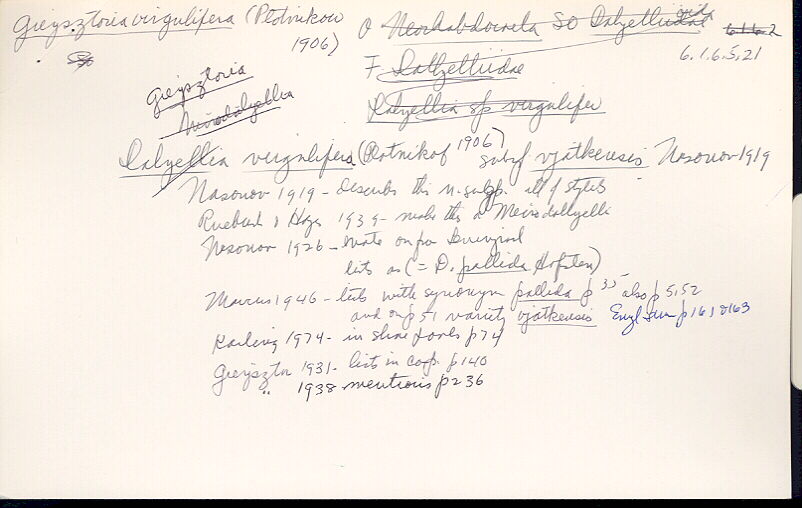 Gieysztoria virgulifera (Plotnikow 1906)
O Neorhabdocoela SO Dalyellioida 6.1.6.2
6.1.6.5.21
F Dalyelliidae
Gieysztoria
Microdalyellia
Dalyellia sp virgulifer
Dalyellia virgulifera (Plotnikof 1906) subsp vjatkensis Nasonov 1919
Nasonov 1919 - describes this n. subsp. ill of stylets
Ruebush & Hayes 1939 - make this a Microdalyelli
Nasonov 1926 -
lists as (= D. pallida Hofsten)
Marcus 1946 - lists with synonym pallida p 35 also p 5, 52
and on p 51 variety vjatkensis Engl sum p 161 & 163
Karling 1974 - in p 74
Gieysztor 1931 - lists in p 140
" 1938 mentions p 236